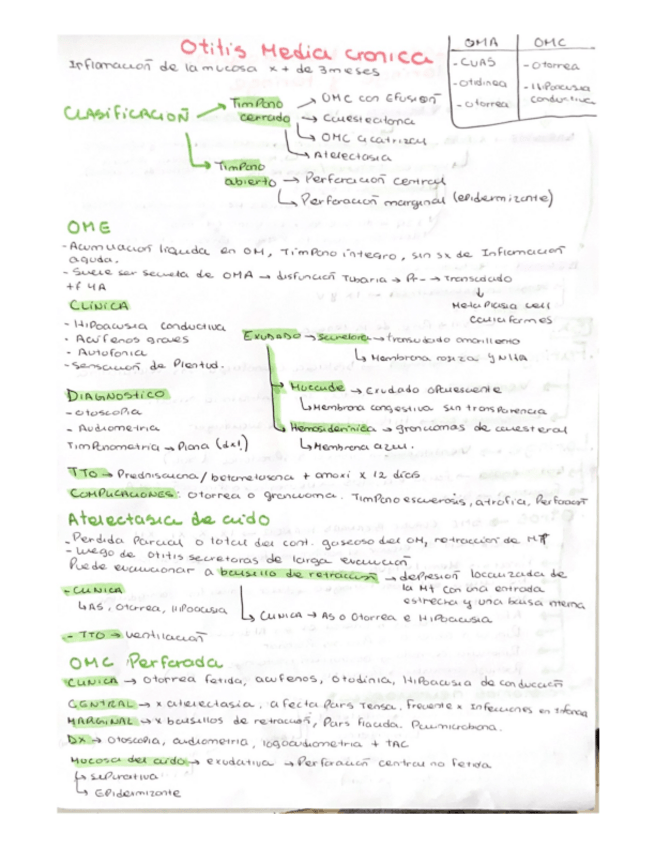 Otitis Media Cronica
Inflamación de la mucosa x + de 3 meses
OMA OMC
- CUAS - Otorrea
- otidinea - Hipoacusia
- otorrea conductiva
CLASIFICACIÓN → Timpano cerrado → OMC con Efusión
→ Colesteatoma
→ OMC cicatrizal
→ Atelectasia
→ Timpano abierto → Perforación central
→ Perforación marginal (epidermizante)
OME
- Acumulación líquida en OM, Timpano íntegro, sin sx de Inflamación
aguda.
- Suele ser secuela de OMA → disfunción Tubaria → Pr- → Transudado
+f 4A ↓
Metaplasia cell
caliciformes
CLÍNICA
- Hipoacusia conductiva
- Acúfenos graves
- Autofonía
- Sensación de Plenitud.
Exudado → Secretora → transudado amarillento
↳ Membrana rojiza y NHA
→ Mucoide → Exudado opalescente
↳ Membrana congestiva sin transparencia
→ Hemosiderínica → granulomas de colesterol
↳ Membrana azul.
DIAGNOSTICO
- otoscopia
- Audiometria
Timponometria → Plana (dx!)
TTO → Prednisolona / betametasona + amoxi x 12 días
COMPLICACIONES: otorrea o granuloma. Timpanoesclerosis, atrofia, Perforación
Atelectasia de oído
- Perdida Parcial o total del cont. gaseoso del OM, retracción de MT
- Luego de otitis secretoras de larga evolución
Puede evolucionar a bolsillo de retracción → depresión localizada de
la MT con una entrada
estrecha y una bolsa interna
- CLINICA
↳ AS, Otorrea, Hipoacusia
↳ CLINICA → AS o Otorrea e Hipoacusia
- TTO → ventilación
OMC Perforada
CLINICA → otorrea fetida, acufenos, otodinia, Hipoacusia de conducción
CENTRAL → x atelectasia, afecta Pars Tensa, frecuente x Infecciones en infancia
MARGINAL → x bolsillos de retracción, Pars flacida. Polimicrobiana.
DX → Otoscopia, audiometria, logoaudiometria + TAC
Mucosa del oído → exudativa → Perforación central no fetida
↳ supurativa
↳ Epidermizante